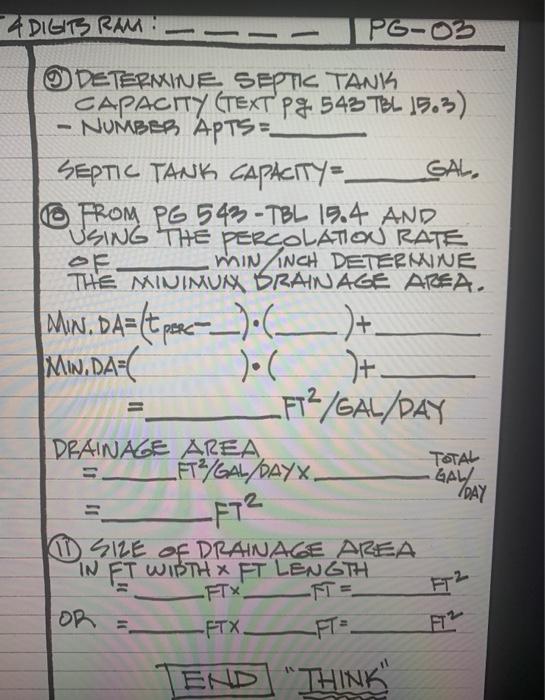 4 DIGITS RAM: _ _ _ _ PG-03
⑨ DETERMINE SEPTIC TANK
CAPACITY (TEXT pg 543 TBL 15.3)
- NUMBER APTS=______
SEPTIC TANK CAPACITY=______GAL.
⑩ FROM PG 543-TBL 15.4 AND
USING THE PERCOLATION RATE
OF ______ MIN/INCH DETERMINE
THE MINIMUM DRAINAGE AREA.
MIN. DA=(t perc-__)·(____)+______
MIN. DA=( )·( )+______
=________FT²/GAL/DAY
DRAINAGE AREA
=____FT²/GAL/DAY X.______ TOTAL GAL/DAY
=______FT²
⑪ SIZE OF DRAINAGE AREA
IN FT WIDTH X FT LENGTH
=____FTX____FT=____FT²
OR =____FTX____FT=____FT²
END "THINK"